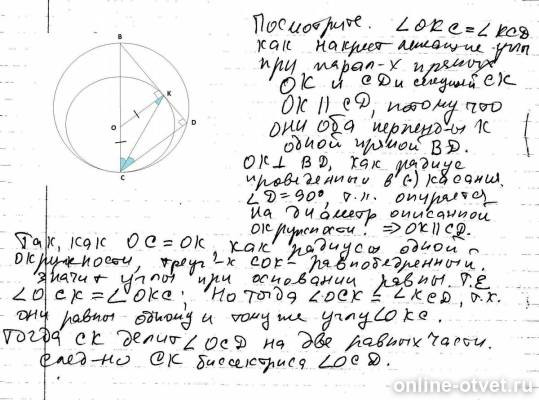 B
K
O
D
C
Посмотрите. ∠OKC = ∠KCD
как накрест лежащие углы
при парал-х прямых
OK и CD и секущей CK
OK || CD, потому что
они оба перпенд-ы к
одной прямой BD.
OK ⊥ BD, как радиус
проведенный в (·) касания.
∠D = 90°, т.к. опирается
на диаметр описанной
окружности. ⇒ OK || CD.
Так, как OC = OK, как радиусы одной
окружности, треуг-к COK - равнобедренный.
Значит углы при основании равны. Т.Е
∠OCK = ∠OKC; Но тогда ∠OCK = ∠KCD, т.к.
они равны одному и тому же углу ∠OKC.
Тогда CK делит ∠OCD на две равных части.
След-но CK биссектриса ∠OCD.
online-otvet.ru